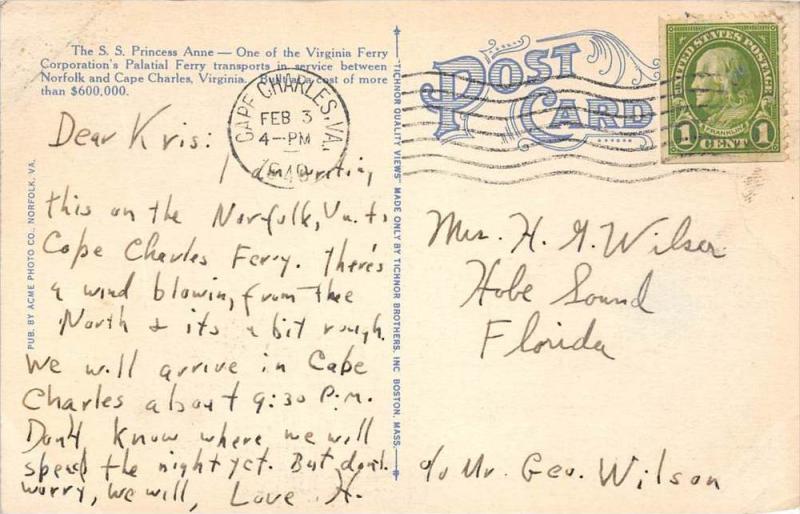 The S. S. Princess Anne — One of the Virginia Ferry
Corporation's Palatial Ferry transports in service between
Norfolk and Cape Charles, Virginia. Built at a cost of more
than $600,000.
POST
CARD
UNITED STATES POSTAGE
FRANKLIN
1 CENT 1
CAPE CHARLES, VA.
FEB 3
4-PM
PUB. BY ACME PHOTO CO., NORFOLK, VA.
TICHNOR QUALITY VIEWS MADE ONLY BY TICHNOR BROTHERS, INC. BOSTON, MASS.
Dear Kris:
I am writing
this on the Norfolk, Va. to
Cape Charles Ferry. There's
a wind blowing from the
North & its a bit rough.
We will arrive in Cape
Charles about 9:30 P.M.
Don't know where we will
spend the night yet. But don't
worry, we will, Love H.
Mrs. H. G. Wilson
Hobe Sound
Florida
c/o Mr. Geo. Wilson